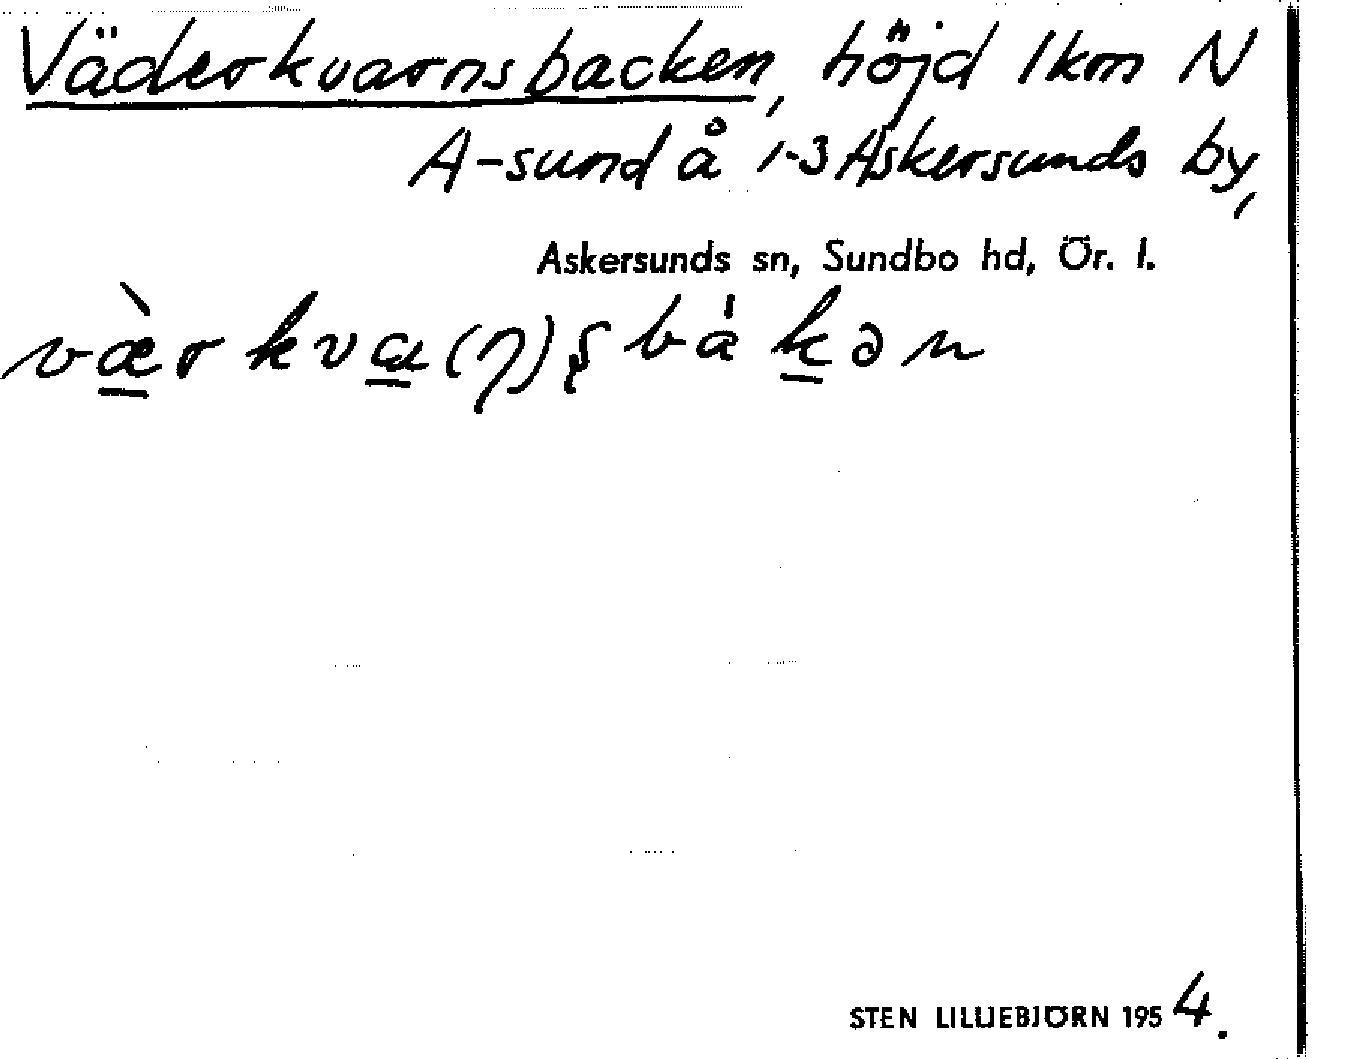 Väderkvarnsbacken, höjd 1 km N
A-sund å 1-3 Askersunds by,
Askersunds sn, Sundbo hd, Ör. l.
væ̀r kva(ɳ)ʂ bá kən
STEN LILLIEBJÖRN 1954.